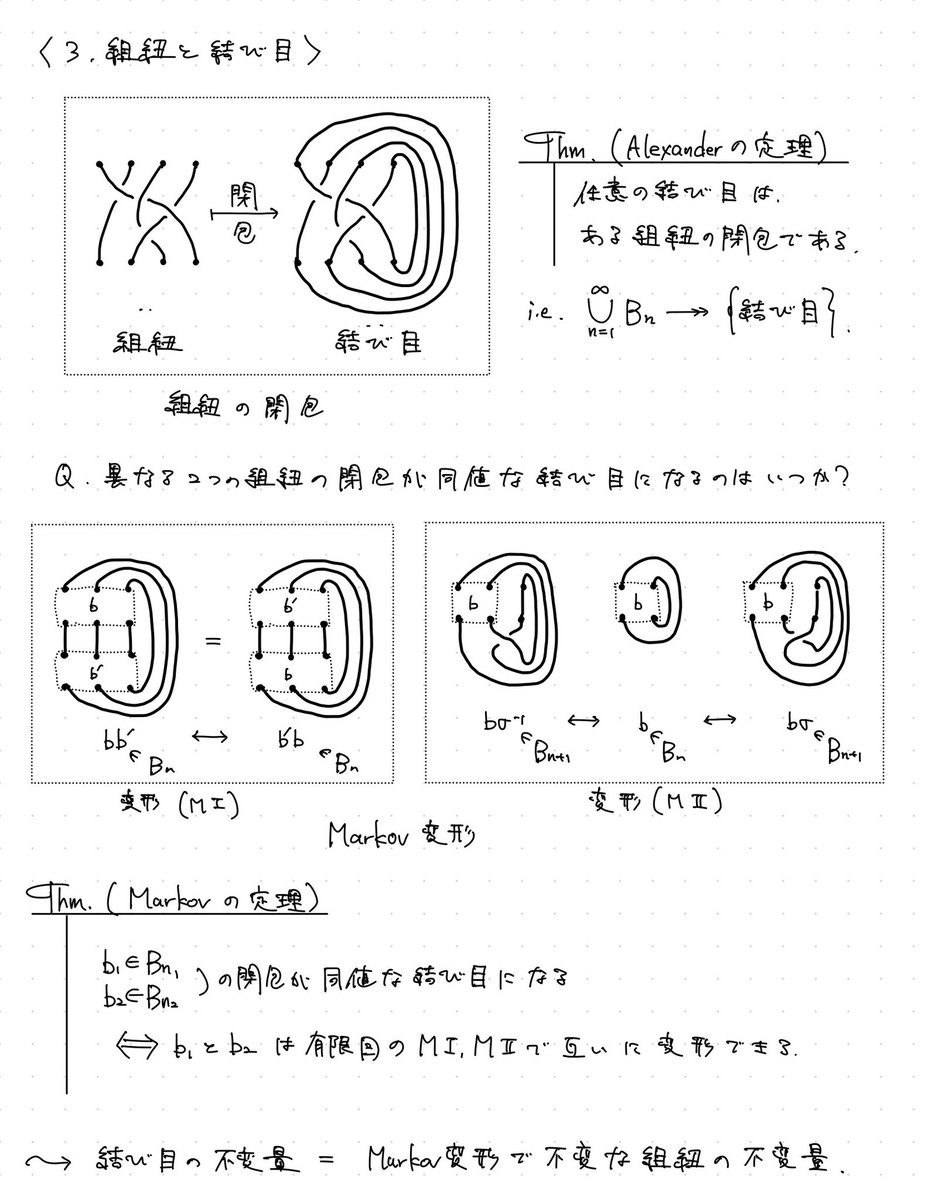 〈3. 組紐と結び目〉
Thm. (Alexanderの定理)
任意の結び目は,
ある組紐の閉包である.
i.e. ∞⋃n=1 Bn ↠ {結び目}.
閉包
組紐
結び目
組紐の閉包
Q. 異なる2つの組紐の閉包が同値な結び目になるのはいつか?
b b' b b b
= 
b' b
bb' ∈ Bn ↔ b'b ∈ Bn
bσ⁻¹ ∈ Bn+1 ↔ b ∈ Bn ↔ bσ ∈ Bn+1
変形 (MⅠ)
変形 (MⅡ)
Markov 変形
Thm. (Markovの定理)
b₁∈Bn₁
b₂∈Bn₂ ) の閉包が同値な結び目になる
⇔ b₁とb₂は有限回のMⅠ, MⅡで互いに変形できる.
⇝ 結び目の不変量 = Markov変形で不変な組紐の不変量.